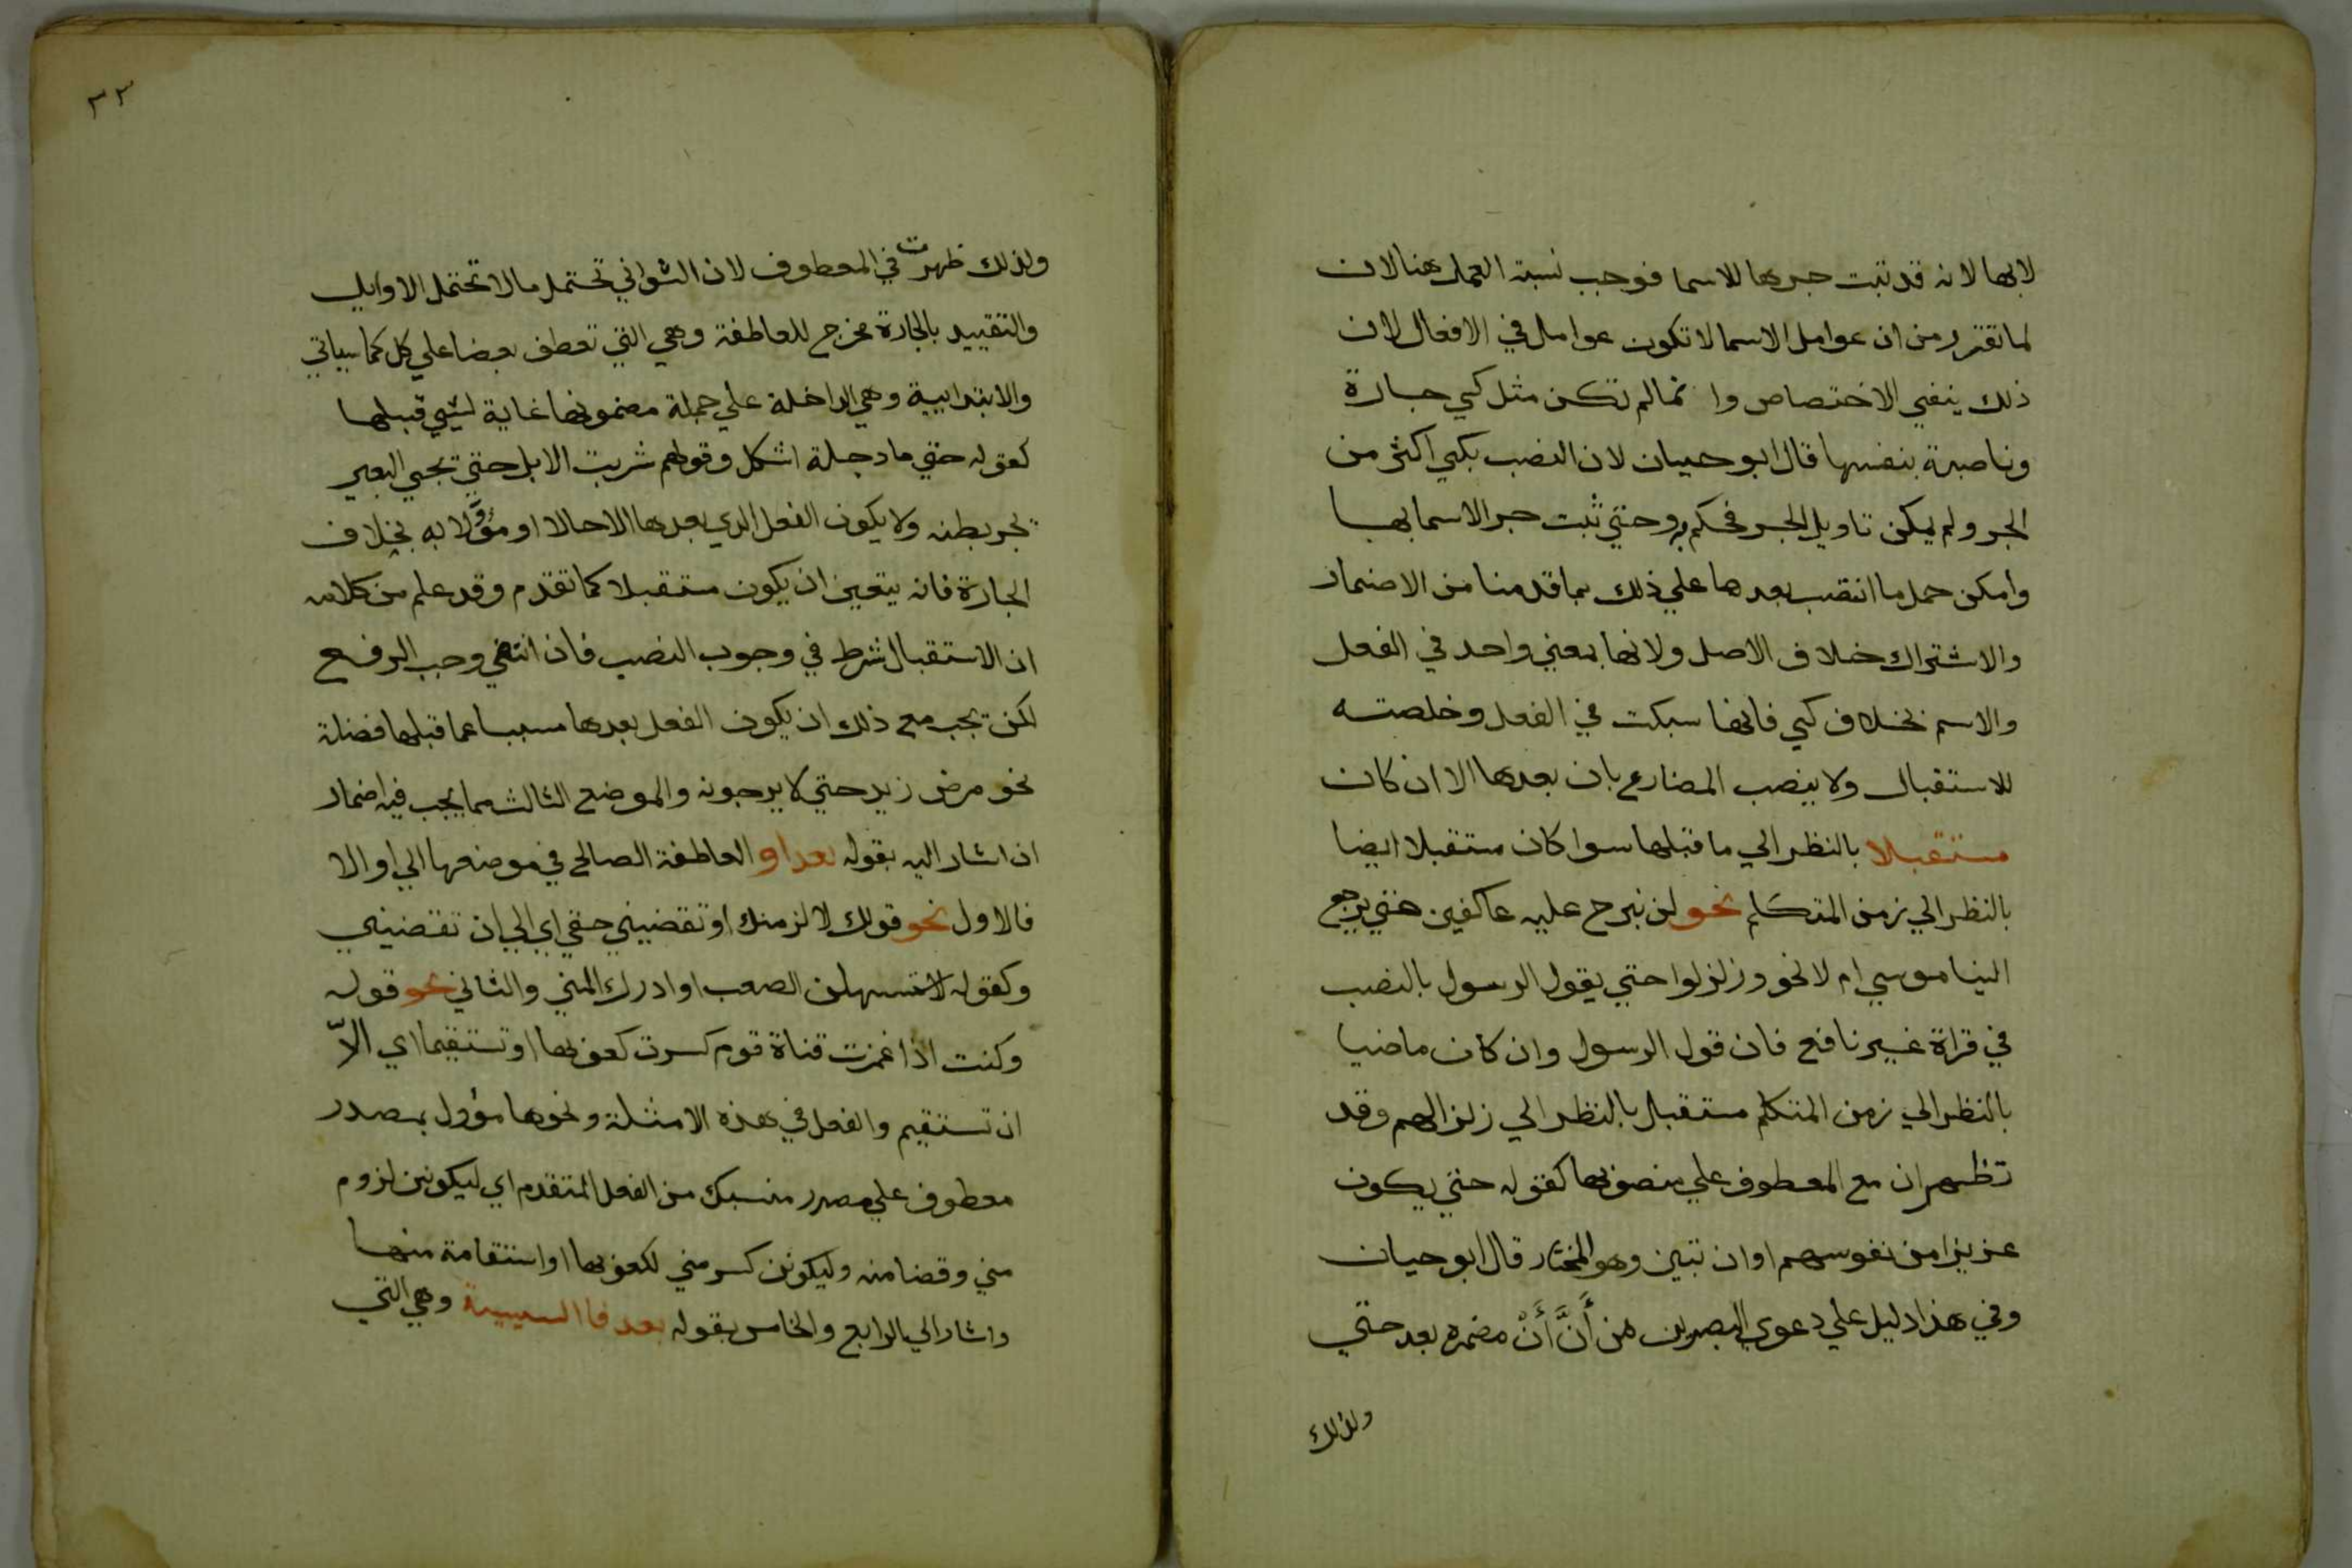 لابها لانه قد ثبت جرها للاسما فوجب نسبة العمل هنا لان
لما تقرر من ان عوامل الاسما لا تكون عوامل في الافعال لان
ذلك ينفي الاختصاص وانما لم تكن مثل كي جارة
وناصبة بنفسها قال ابو حيان لان النصب بكي اكثر من
الجر ولم يمكن تاويل الجر فحكم به وحتي ثبت جر الاسما بها
وامكن حمل ما انتصب بعدها علي ذلك بما قدمنا من الاضمار
والاشتراك خلاف الاصل ولانها بمعني واحد في الفعل
والاسم بخلاف كي فانها سبكت في الفعل وخلصته
للاستقبال ولا ينصب المضارع بان بعدها الا ان كان
مستقبلا بالنظر الي ما قبلها سوا كان مستقبلا ايضا
بالنظر الي زمن المتكلم نحو لن نبرح عليه عاكفين حتي يرجع
الينا موسي ام لا نحو وزلزلوا حتي يقول الرسول بالنصب
في قراة غير نافع فان قول الرسول وان كان ماضيا
بالنظر الي زمن المتكلم مستقبل بالنظر الي زلزالهم وقد
تظهر ان مع المعطوف علي منصوبها كقوله حتي يكون
عزيزا من نفوسهم او ان تبين وهو المختار قال ابو حيان
وفي هذا دليل علي دعوي البصريين من أَنَّ أَنْ مضمره بعد حتي
ولذلك
٣٣
ولذلك ظهرت في المعطوف لان الثواني تحتمل ما لا تحتمل الاوايل
والتقييد بالجارة مخرج للعاطفة وهي التي تعطف بعضا علي كل كما سياتي
والابتدايية وهي الداخلة علي جملة مضمونها غاية لشي قبلها
كقوله حتي ما دجلة اشكل وقولهم شربت الابل حتي تجي البعير
يجر بطنه ولا يكون الفعل الذي بعدها الا حالا او مؤَوَّلا به بخلاف
الجارة فانه يتعين ان يكون مستقبلا كما تقدم وقد علم من كلامه
ان الاستقبال شرط في وجوب النصب فان انتفي وجب الرفع
لكن يجب مع ذلك ان يكون الفعل بعدها مسببا عما قبلها فضلة
نحو مرض زيد حتي لا يرجونه والموضع الثالث مما يجب فيه اضمار
ان اشار اليه بقوله بعد او العاطفة الصالح في موضعها الي او الا
فالاول نحو قولك لالزمنك او تقضيني حقي اي الي ان تقضيني
وكقوله لاستسهلن الصعب او ادرك المني والثاني نحو قوله
وكنت اذا غمزت قناة قوم كسرت كعوبها او تستقيما اي الاّ
ان تستقيم والفعل في هذه الامثلة ونحوها مؤول بمصدر
معطوف علي مصدر منسبك من الفعل المتقدم اي ليكونن لزوم
مني وقضا منه وليكونن كسر مني لكعوبها او استقامة منها
واشار الي الرابع والخامس بقوله بعد فا السببية وهي التي